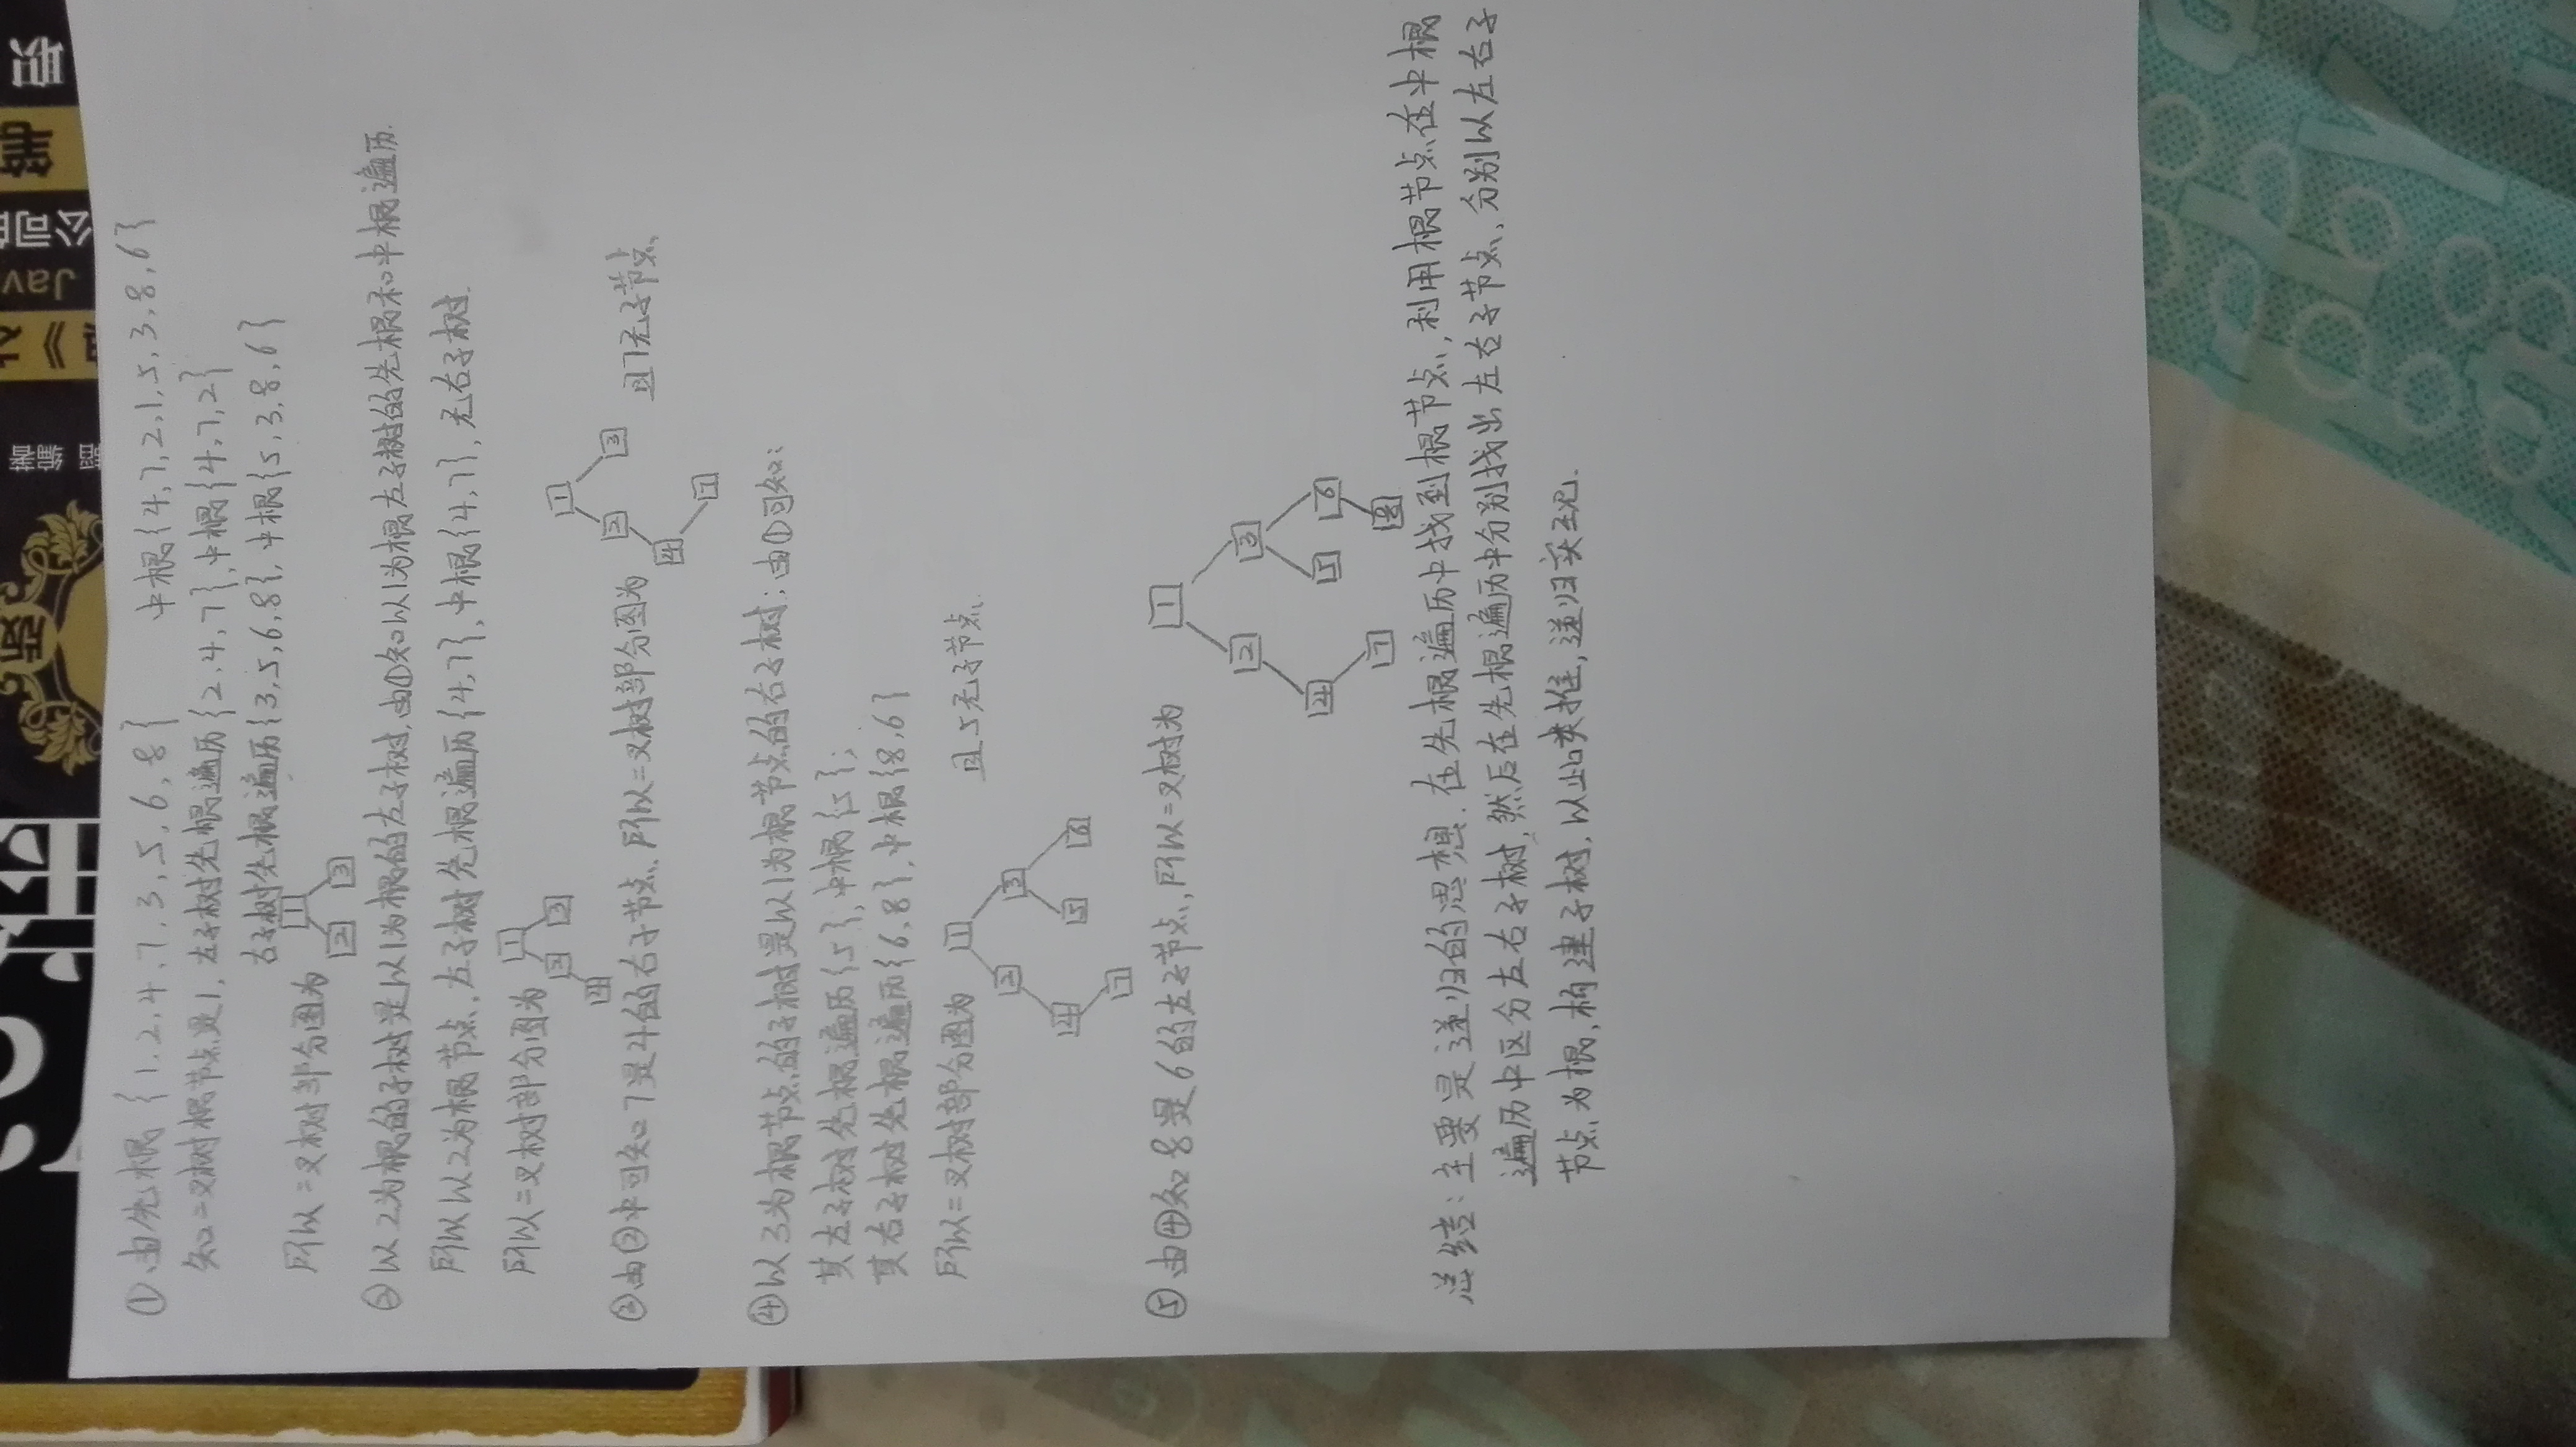 ①由先根{1,2,4,7,3,5,6,8} 中根{4,7,2,1,5,3,8,6}
知二叉树根节点是1,左子树先根遍历{2,4,7},中根{4,7,2}
右子树先根遍历{3,5,6,8},中根{5,3,8,6}
所以二叉树部分图为
1
2 3
②以2为根的子树是以1为根的左子树,由①知以1为根左子树的先根和中根遍历.
所以以2为根节点,左子树先根遍历{4,7},中根{4,7},无右子树.
所以二叉树部分图为
1
2 3
4
③由②中可知7是4的右子节点,所以二叉树部分图为 且7无子节点
1
2 3
4
7
④以3为根节点的子树是以1为根节点的右子树;由①可知:
其左子树先根遍历{5},中根{5};
其右子树先根遍历{6,8},中根{8,6}
所以二叉树部分图为 且5无子节点.
1
2 3
4 5 6
7
⑤由④知8是6的左子节点,所以二叉树为
1
2 3
4 5 6
7 8
总结:主要是递归的思想.在先根遍历中找到根节点,利用根节点在中根
遍历中区分左右子树,然后在先根遍历中分别找出左右子节点,分别以左右子
节点为根,构建子树,以此类推,递归实现.
职
公司
Jav
编著